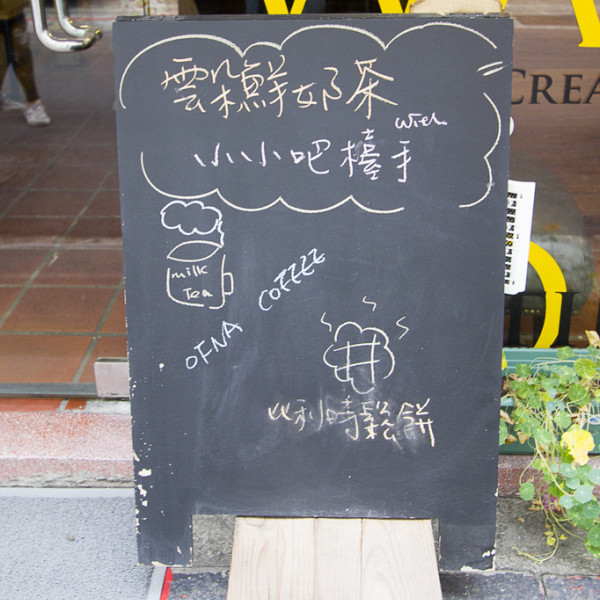 雲朵鮮奶茶
with
小小吧檯手
milk
Tea
OFNA COFFEE
比利時鬆餅
CREA